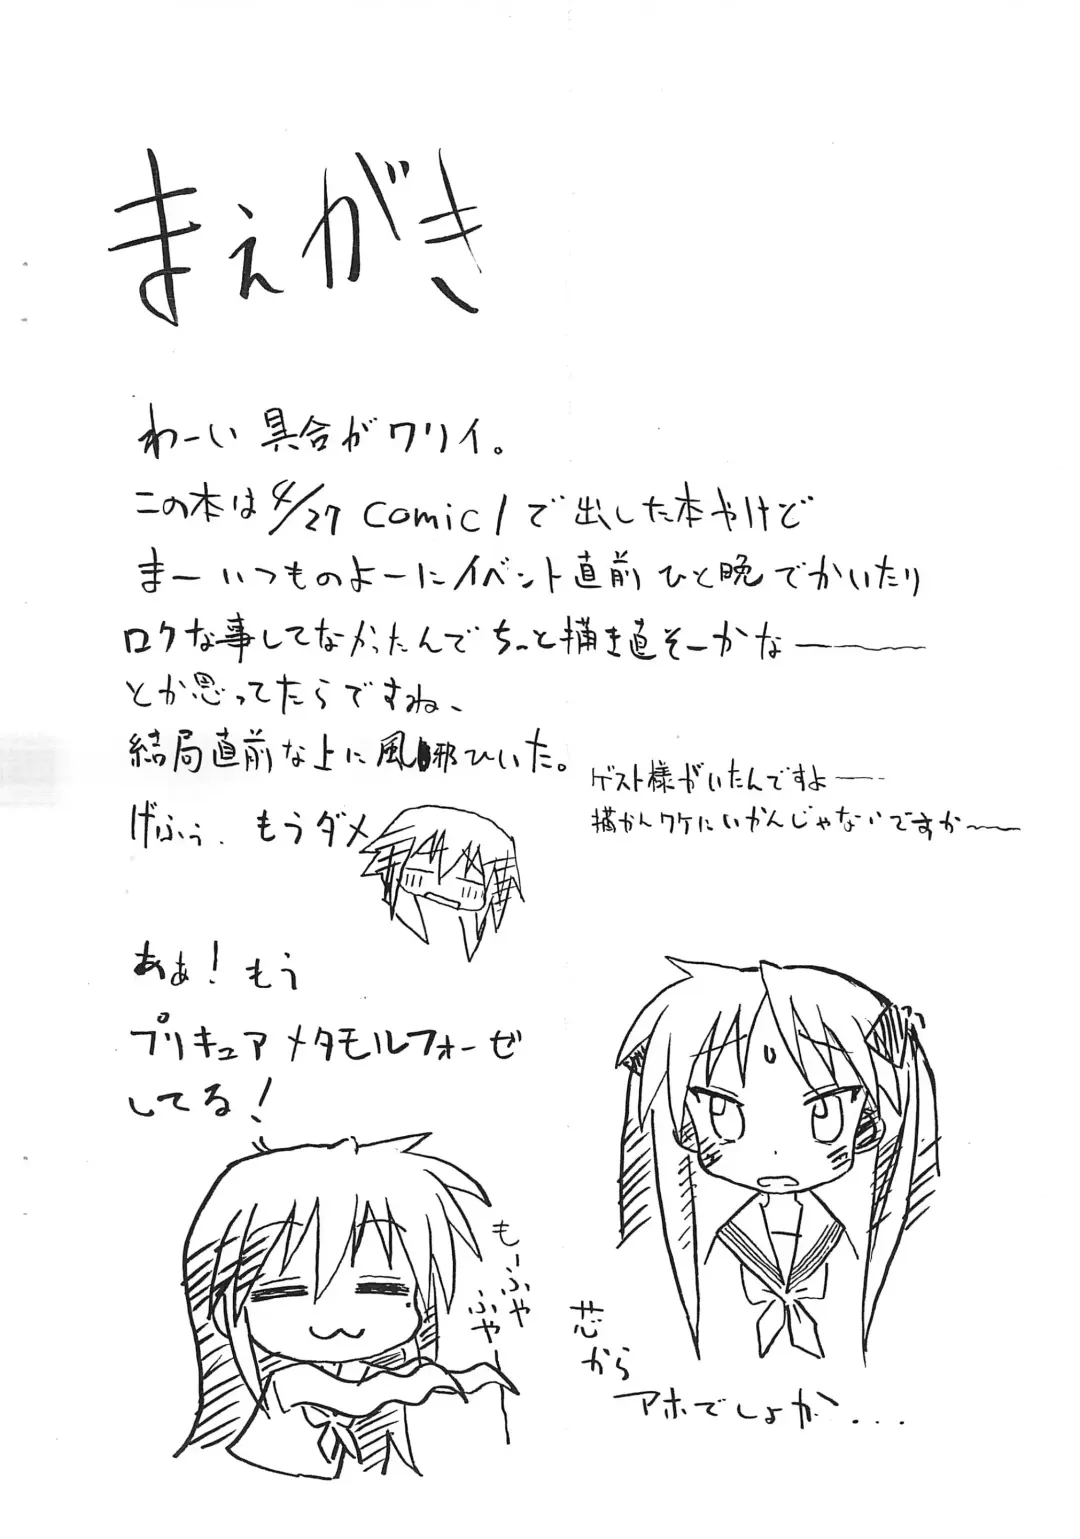 まえがき
わーい 具合がワリイ。
この本は4/27 comic1で出した本やけど
まーいつものよーにイベント直前ひと晩でかいたり
ロクな事してなかったんでちっと描き直そーかなー
とか思ってたらですね、
結局直前な上に風邪ひいた。
ゲスト様がいたんですよー
描かんワケにいかんじゃないですか〜
げふぅ. もうダメ
あぁ!もう
プリキュアメタモルフォーゼ
してる!
もーふや
ふやー
芯
から
アホでしょか...